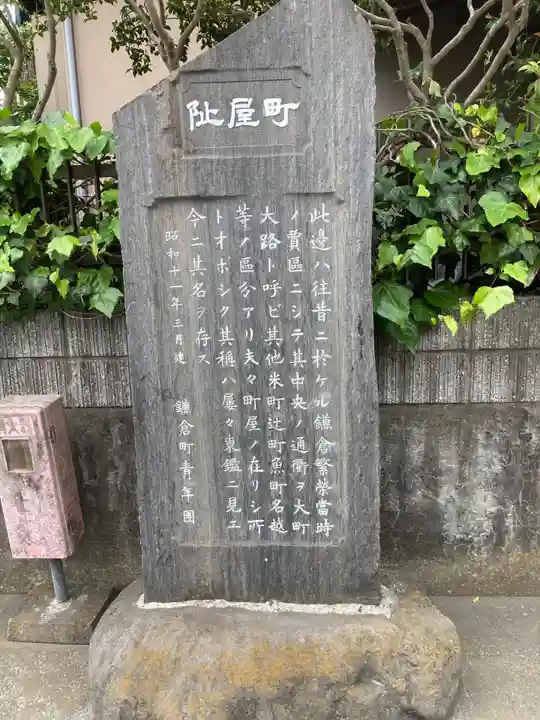 町屋阯
此邊ハ往昔ニ於ケル鎌倉繁榮當時
ノ賈區ニシテ其中央ノ通衢ヲ大町
大路ト呼ビ其他米町辻町魚町名越
等ノ區分アリ夫々町屋ノ在リシ所
トオボシク其稱ハ屡々東鑑ニ見エ
今ニ其名ヲ存ス
昭和十一年三月建 鎌倉町青年團